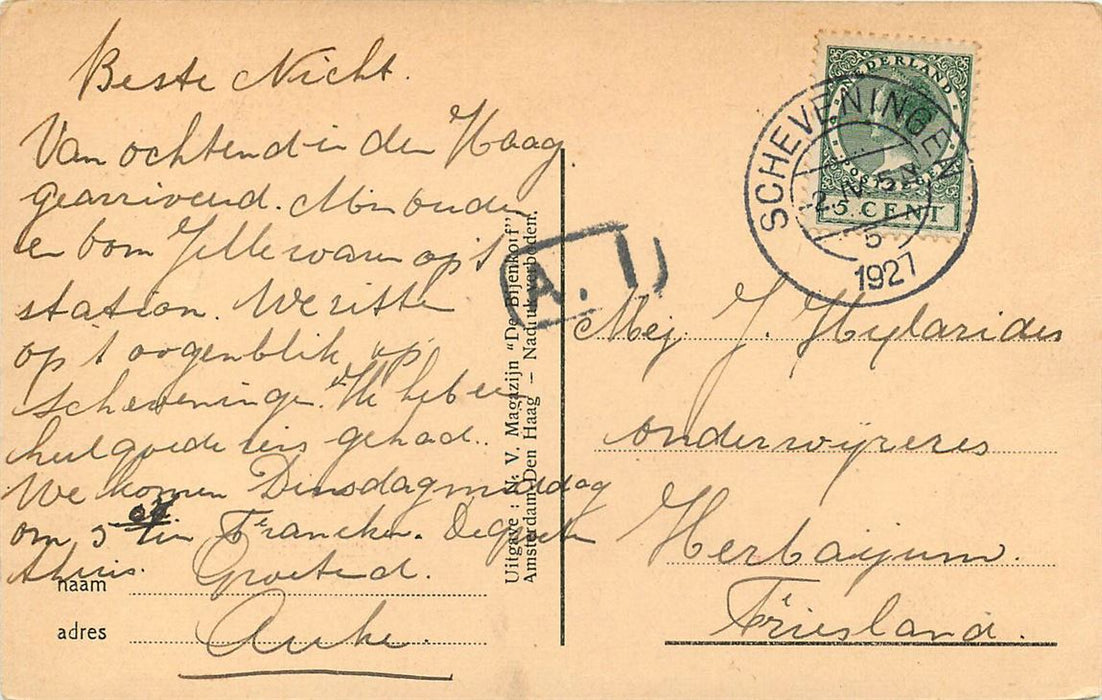 Beste Nicht.
Van ochtend in den Haag
gearriveerd. Mijn ouders
en oom Jelle waren op 't
station. We zitten
op 't oogenblik op
Scheveningen. We hebben
heel goede reis gehad.
We komen Dinsdagmiddag
om 5 in Franeker. De groeten
thuis. Groetend.
Auke.
naam
adres
Uitgave: N. V. Magazijn "De Bijenkorf",
Amsterdam-Den Haag — Nadruk verboden.
A. I
NEDERLAND
POSTZEGEL
5 CENT
SCHEVENINGEN
5
1927
Mej J. Hylarides
onderwijzeres
Herbaijum.
Friesland.